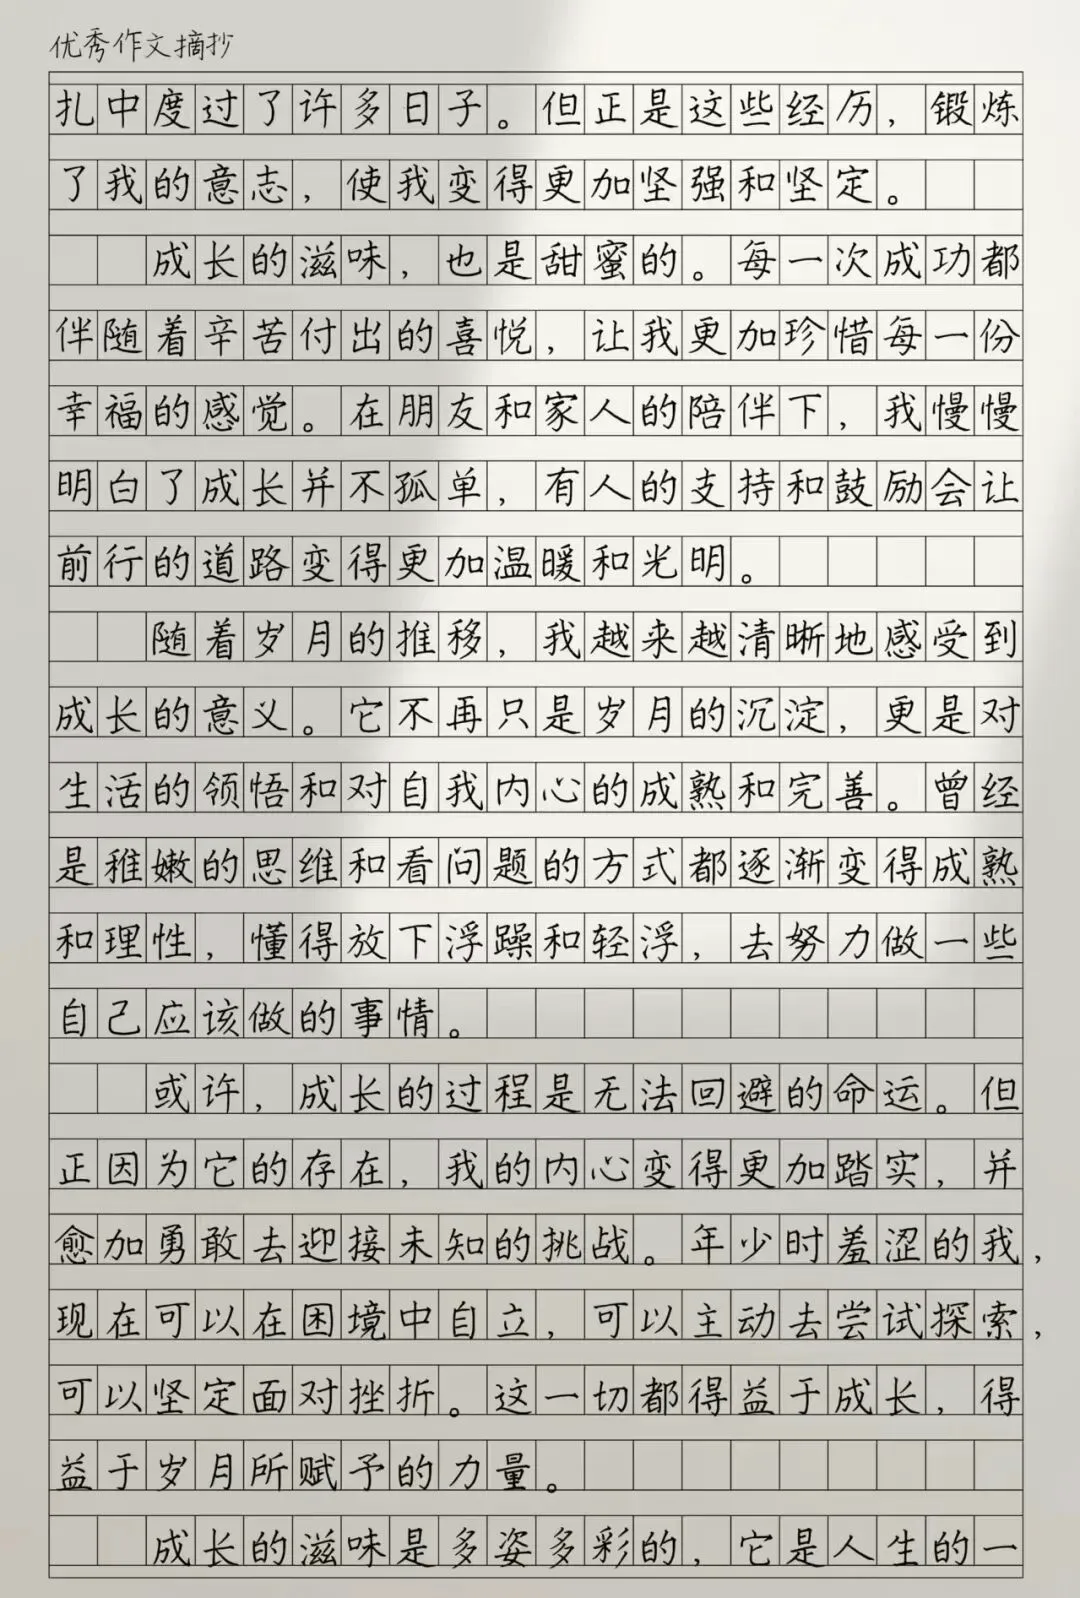 优秀作文摘抄
扎中度过了许多日子。但正是这些经历，锻炼
了我的意志，使我变得更加坚强和坚定。
成长的滋味，也是甜蜜的。每一次成功都
伴随着辛苦付出的喜悦，让我更加珍惜每一份
幸福的感觉。在朋友和家人的陪伴下，我慢慢
明白了成长并不孤单，有人的支持和鼓励会让
前行的道路变得更加温暖和光明。
随着岁月的推移，我越来越清晰地感受到
成长的意义。它不再只是岁月的沉淀，更是对
生活的领悟和对自我内心的成熟和完善。曾经
是稚嫩的思维和看问题的方式都逐渐变得成熟
和理性，懂得放下浮躁和轻浮，去努力做一些
自己应该做的事情。
或许，成长的过程是无法回避的命运。但
正因为它的存在，我的内心变得更加踏实，并
愈加勇敢去迎接未知的挑战。年少时羞涩的我，
现在可以在困境中自立，可以主动去尝试探索，
可以坚定面对挫折。这一切都得益于成长，得
益于岁月所赋予的力量。
成长的滋味是多姿多彩的，它是人生的一